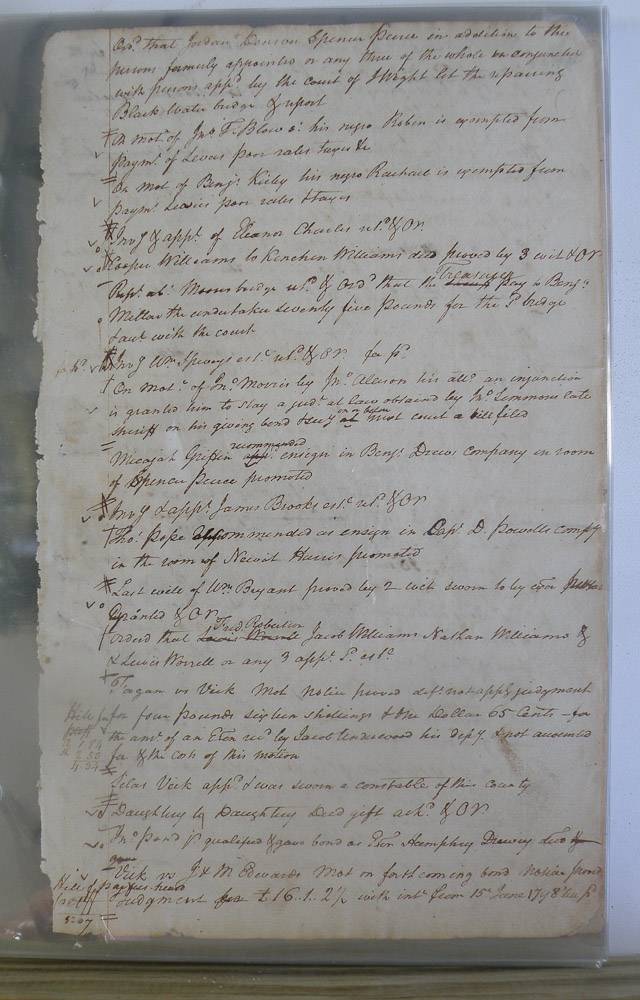 Ord. that Jordan Denson Spencer Pierce in addition to the
persons formerly appointed or any three of the whole in conjunction
with persons app.d by the court of I Wight let the repairing
Black Water bridge & report
On mot.n of Jn.o T. Blow &c his negro Robin is exempted from
Paym.t of Levies poor rates taxes &c
On mot of Benj.a Kirby his negro Rachael is exempted from
paym.t Levies poor rates & taxes
Inv.y & app.t of Eleanor Charles ret.d & OR
Cooper Williams to Kinchen Williams deed proved by 3 wit & OR
Rep.t ab.t bridge ret.d & Ord.d that the Treasurer pay to Benj.a
the undertaker seventy five pounds for the s.d bridge
with the court
Inv.y Wm Spiveys est.e ret.d & OR
On Mot.n of Jn.o Morris by Jn.o his att.o an injunction
is granted him to stay a jud.t at law obtained by late
sheriff on his giving bond & secy on or before next court a bill filed
Micajah Griffin recommended ensign in Benj.a Drews company in room
of Spencer Pierce promoted
Inv.y & app.t James Brooks est.e ret.d & OR
Tho.s Pope recommended as ensign in Cap.t D. Powells comp.y
in the room of Newit Harris promoted
Last will of Wm Bryant proved by 2 wit sworn to by
Granted & OR
Ordered that Fred Roberson Jacob Williams Nathan Williams &
& Lewis Worrell or any 3 app.t s.d est.e
Fagan vs Vick Mot Notice proved def.t not app.g judgment
for four pounds sixteen shillings & one Dollar 65 Cents for
the am.t of an Exon rec.d by Jacob Underwood his dep.y & not accounted
for & the costs of this motion
Silas Vick app.d & was sworn a constable of this county
Daughtry to Daughtry Deed gift ack.d & OR
Jn.o Pond jr qualified & gave bond as Exor Humphrey Drewry
Vick vs J & M Edwards Mot on forthcoming bond Notice proved
parties heard
Judgment for £16..1..2½ with int.t from 15 June 1798